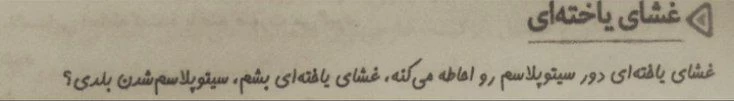 غشای یاخته‌ای
غشای یاخته‌ای دور سیتوپلاسم رو احاطه می‌کنه، غشای یاخته‌ای بشم، سیتوپلاسم شدن بلدی؟